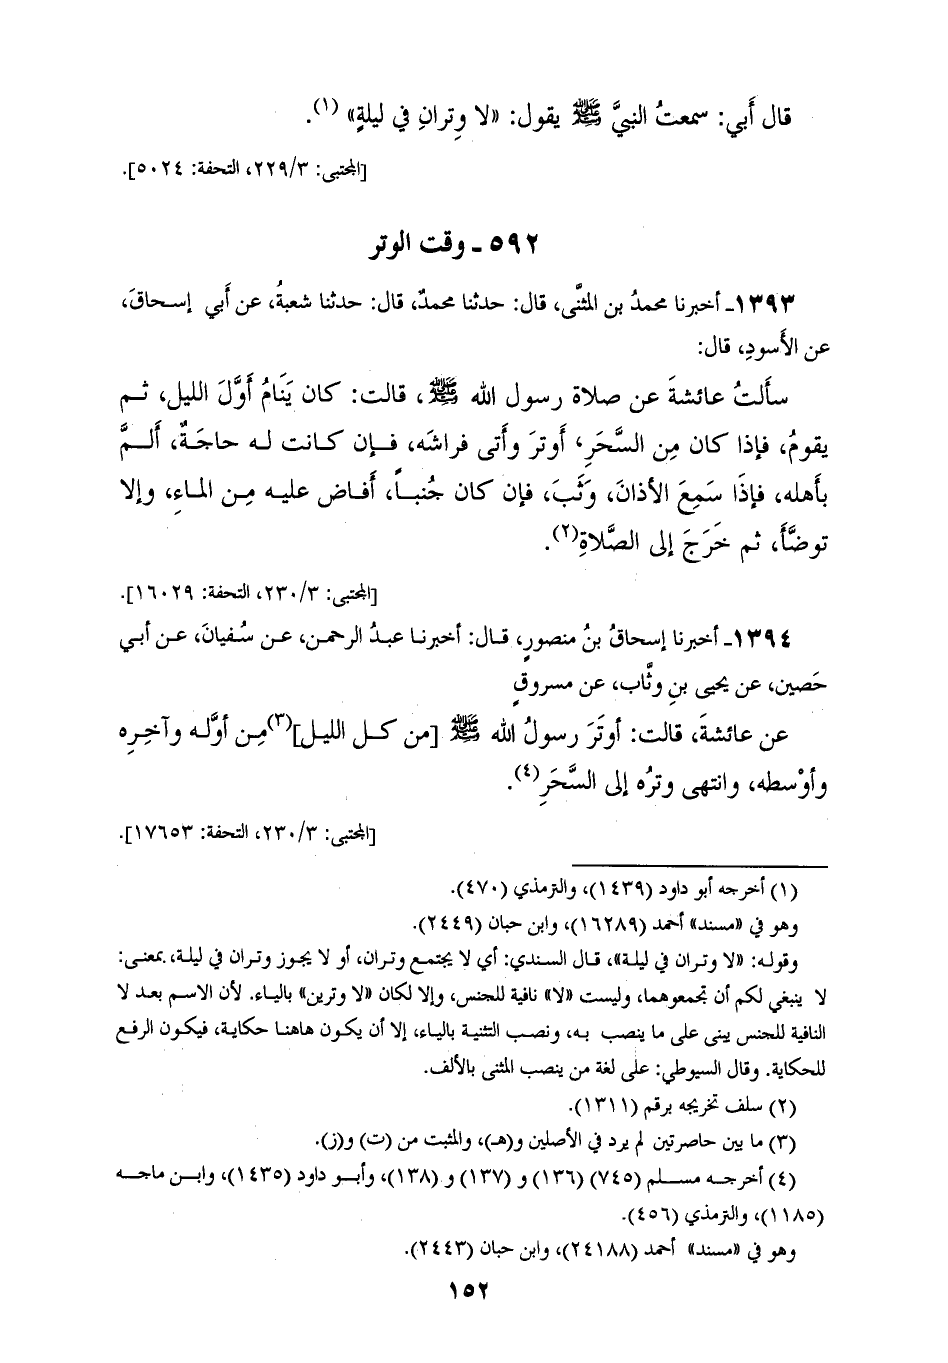 قال أَبي: سمعتُ النبيَّ ﷺ يقول: «لا وِترانِ في ليلةٍ» (١).
[المجتبى: ٢٢٩/٣، التحفة: ٥٠٢٤].
٥٩٢ ـ وقت الوتر
١٣٩٣ـ أخبرنا محمدُ بن المثنَّى، قال: حدثنا محمدٌ، قال: حدثنا شعبةُ، عن أَبي إسحاقَ،
عن الأَسودِ، قال:
سأَلتُ عائشةَ عن صلاة رسول الله ﷺ، قالت: كان يَنَامُ أَوَّلَ الليل، ثم
يقومُ، فإذا كان مِن السَّحَرِ، أَوترَ وأَتى فراشَه، فإن كانت له حاجَةٌ، أَلمَّ
بأَهله، فإذَا سَمِعَ الأذانَ، وَثَبَ، فإن كان جُنباً، أَفاض عليه مِن الماءِ، وإلا
توضَّأَ، ثم خَرَجَ إلى الصَّلاةِ(٢).
[المجتبى: ٢٣٠/٣، التحفة: ١٦٠٢٩].
١٣٩٤ـ أخبرنا إسحاقُ بنُ منصورٍ، قال: أخبرنا عبدُ الرحمن، عن سُفيانَ، عن أبي
حَصين، عن يحيى بنِ وثَّاب، عن مسروقٍ
عن عائشةَ، قالت: أوتَرَ رسولُ الله ﷺ [من كل الليل](٣)مِن أوَّله وآخِرِه
وأوْسطه، وانتهى وترُه إلى السَّحَرِ(٤).
[المجتبى: ٢٣٠/٣، التحفة: ١٧٦٥٣].
(١) أخرجه أبو داود (١٤٣٩)، والترمذي (٤٧٠).
وهو في «مسند» أحمد (١٦٢٨٩)، وابن حبان (٢٤٤٩).
وقوله: «لا وتران في ليلة»، قال السندي: أي لا يجتمع وتران، أو لا يجوز وتران في ليلة، بمعنى:
لا ينبغي لكم أن تجمعوهما، وليست «لا» نافية للجنس، وإلا لكان «لا وترين» بالياء. لأن الاسم بعد لا
النافية للجنس يبنى على ما ينصب به، ونصب التثنية بالياء، إلا أن يكون هاهنا حكاية، فيكون الرفع
للحكاية. وقال السيوطي: على لغة من ينصب المثنى بالألف.
(٢) سلف تخريجه برقم (١٣١١).
(٣) ما بين حاصرتين لم يرد في الأصلين و(هـ)، والمثبت من (ت) و(ز).
(٤) أخرجه مسلم (٧٤٥) (١٣٦) و (١٣٧) و (١٣٨)، وأبو داود (١٤٣٥)، وابن ماجه
(١١٨٥)، والترمذي (٤٥٦).
وهو في «مسند» أحمد (٢٤١٨٨)، وابن حبان (٢٤٤٣).
١٥٢